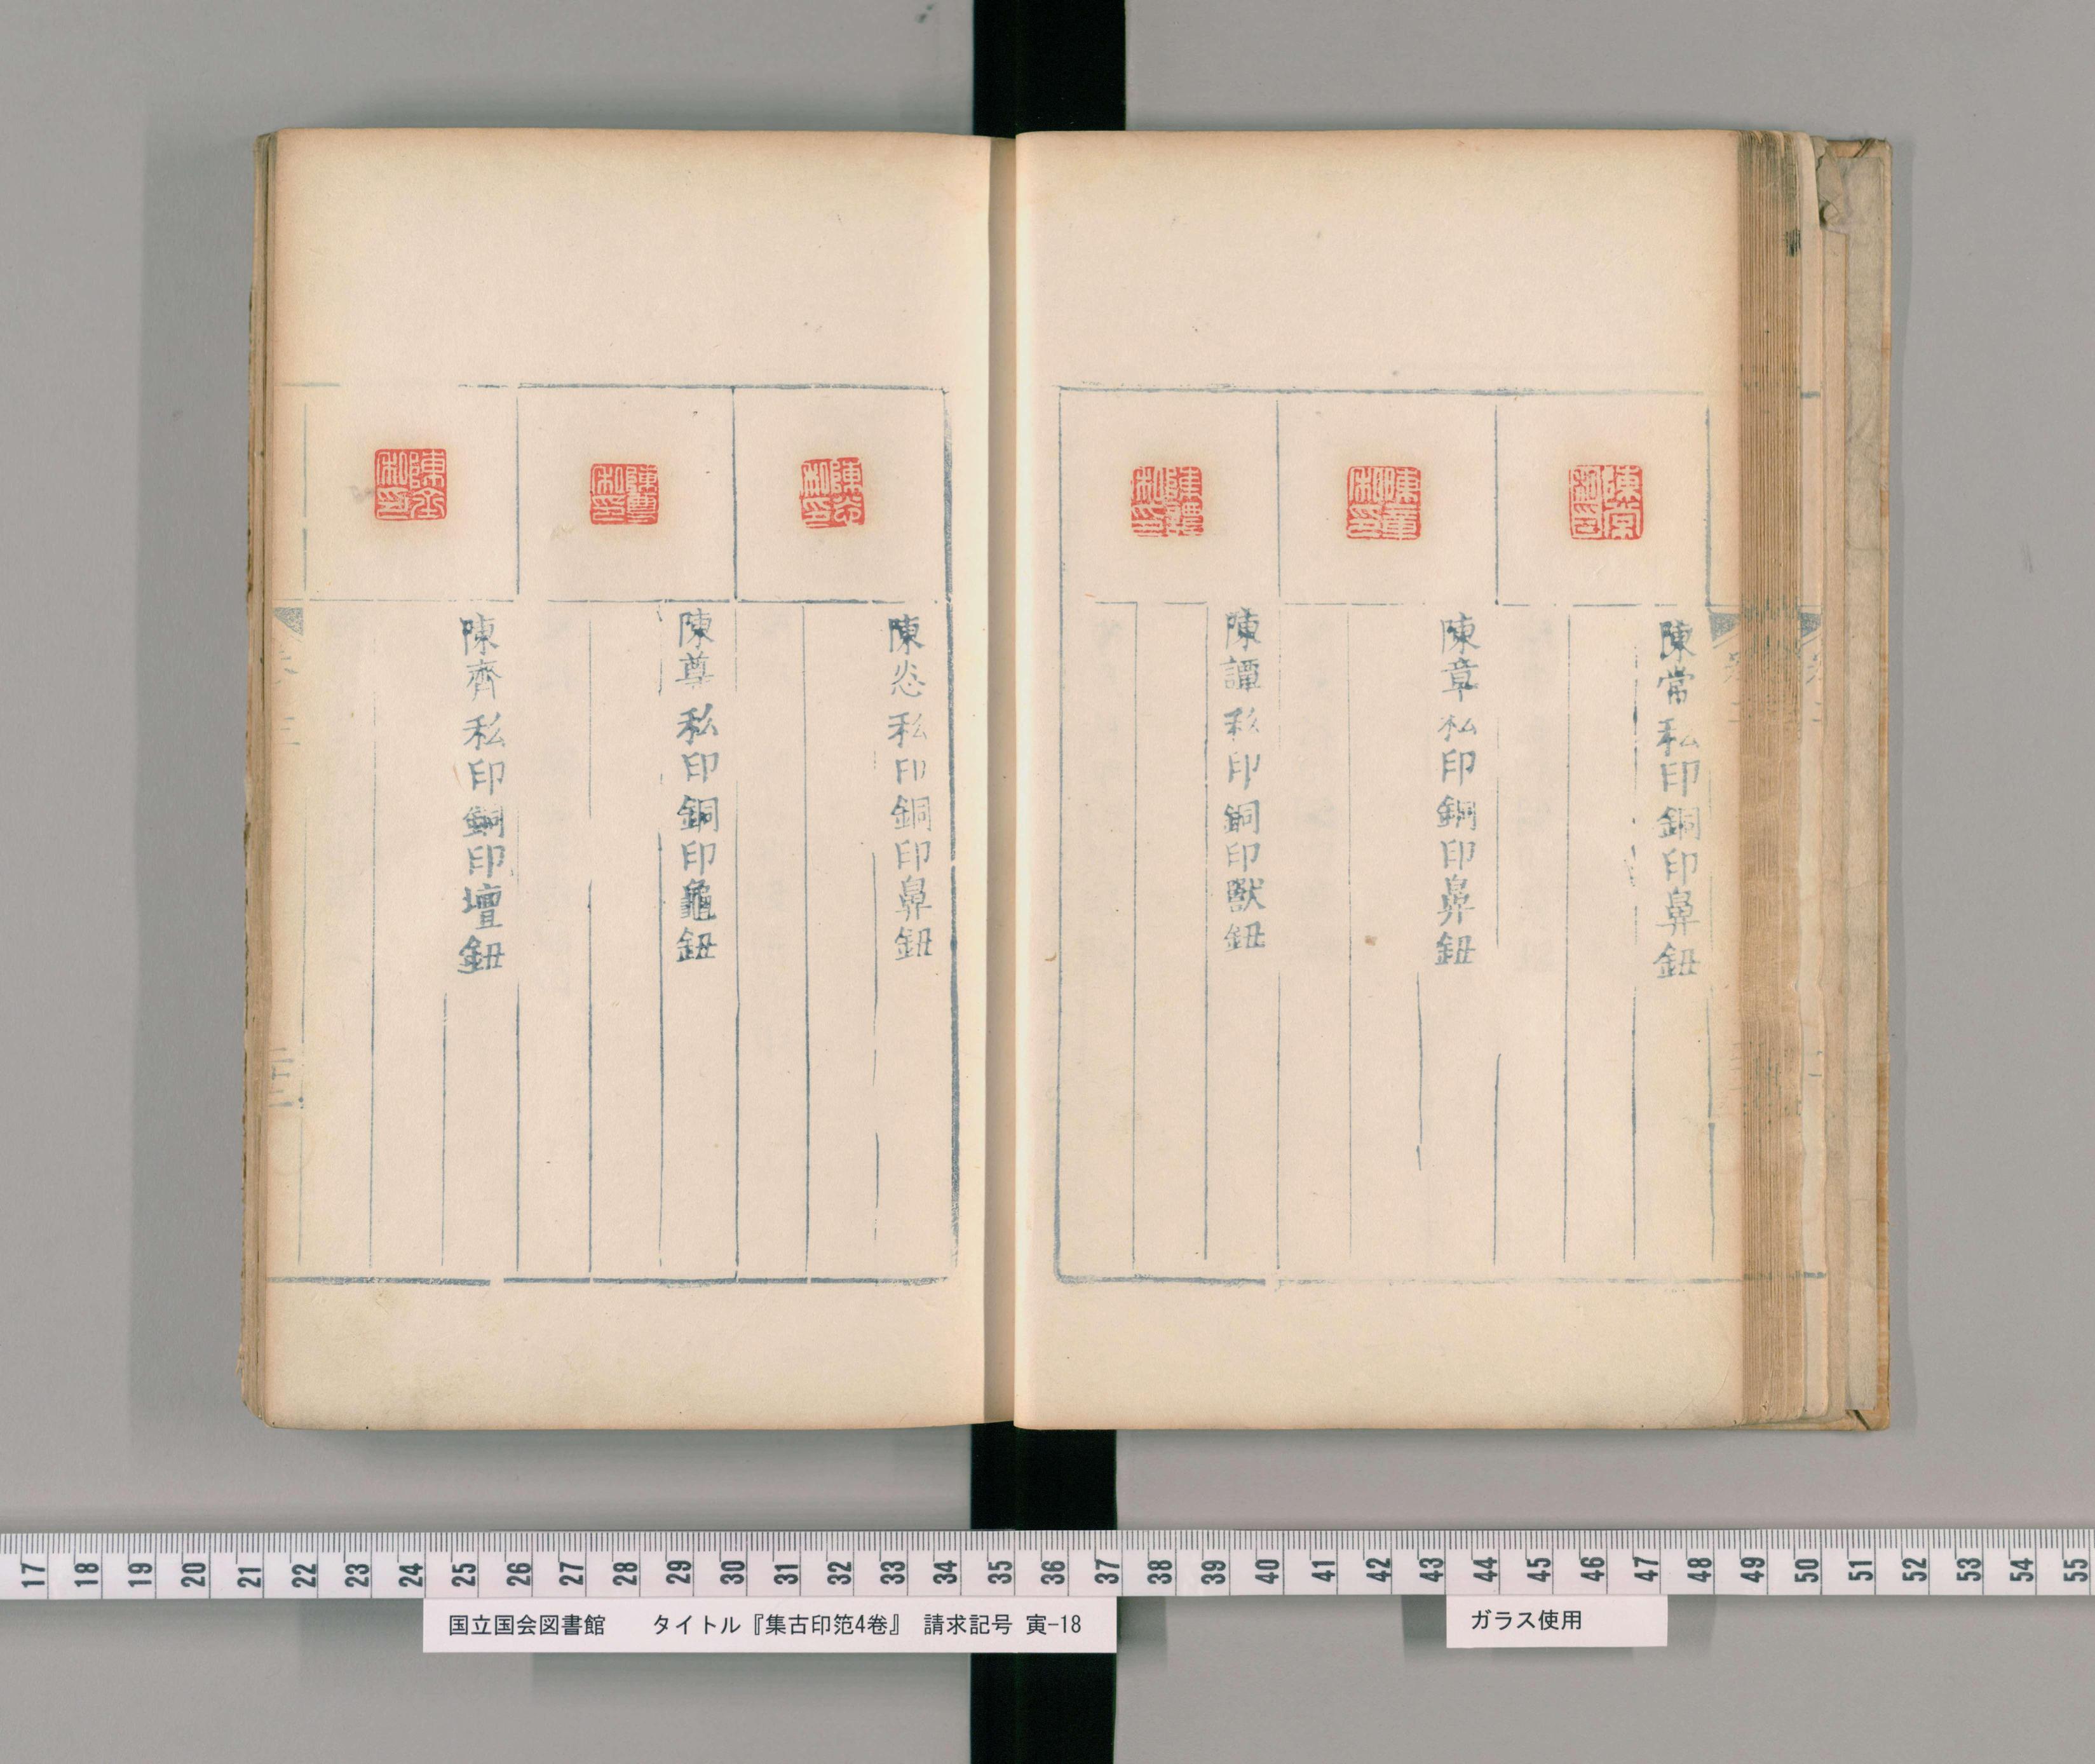 陳常私印銅印鼻鈕
陳章私印銅印鼻鈕
陳譚私印銅印獸鈕
陳恣私印銅印鼻鈕
陳尊私印銅印龜鈕
陳齊私印銅印壇鈕
17 18 19 20 21 22 23 24 25 26 27 28 29 30 31 32 33 34 35 36 37 38 39 40 41 42 43 44 45 46 47 48 49 50 51 52 53 54 55
国立国会図書館 タイトル『集古印笵4巻』 請求記号 寅-18
ガラス使用